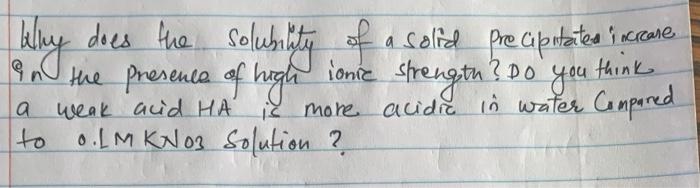 Why does the solubility of a solid precipitates increase
in the presence of high ionic strength? Do you think
a weak acid HA is more acidic in water Compared
to 0.1M KNO3 Solution?